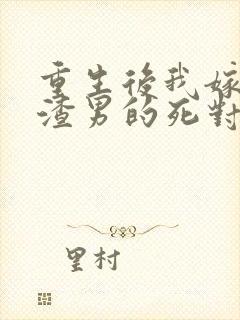 重生後我嫁
渣男的死對
里村